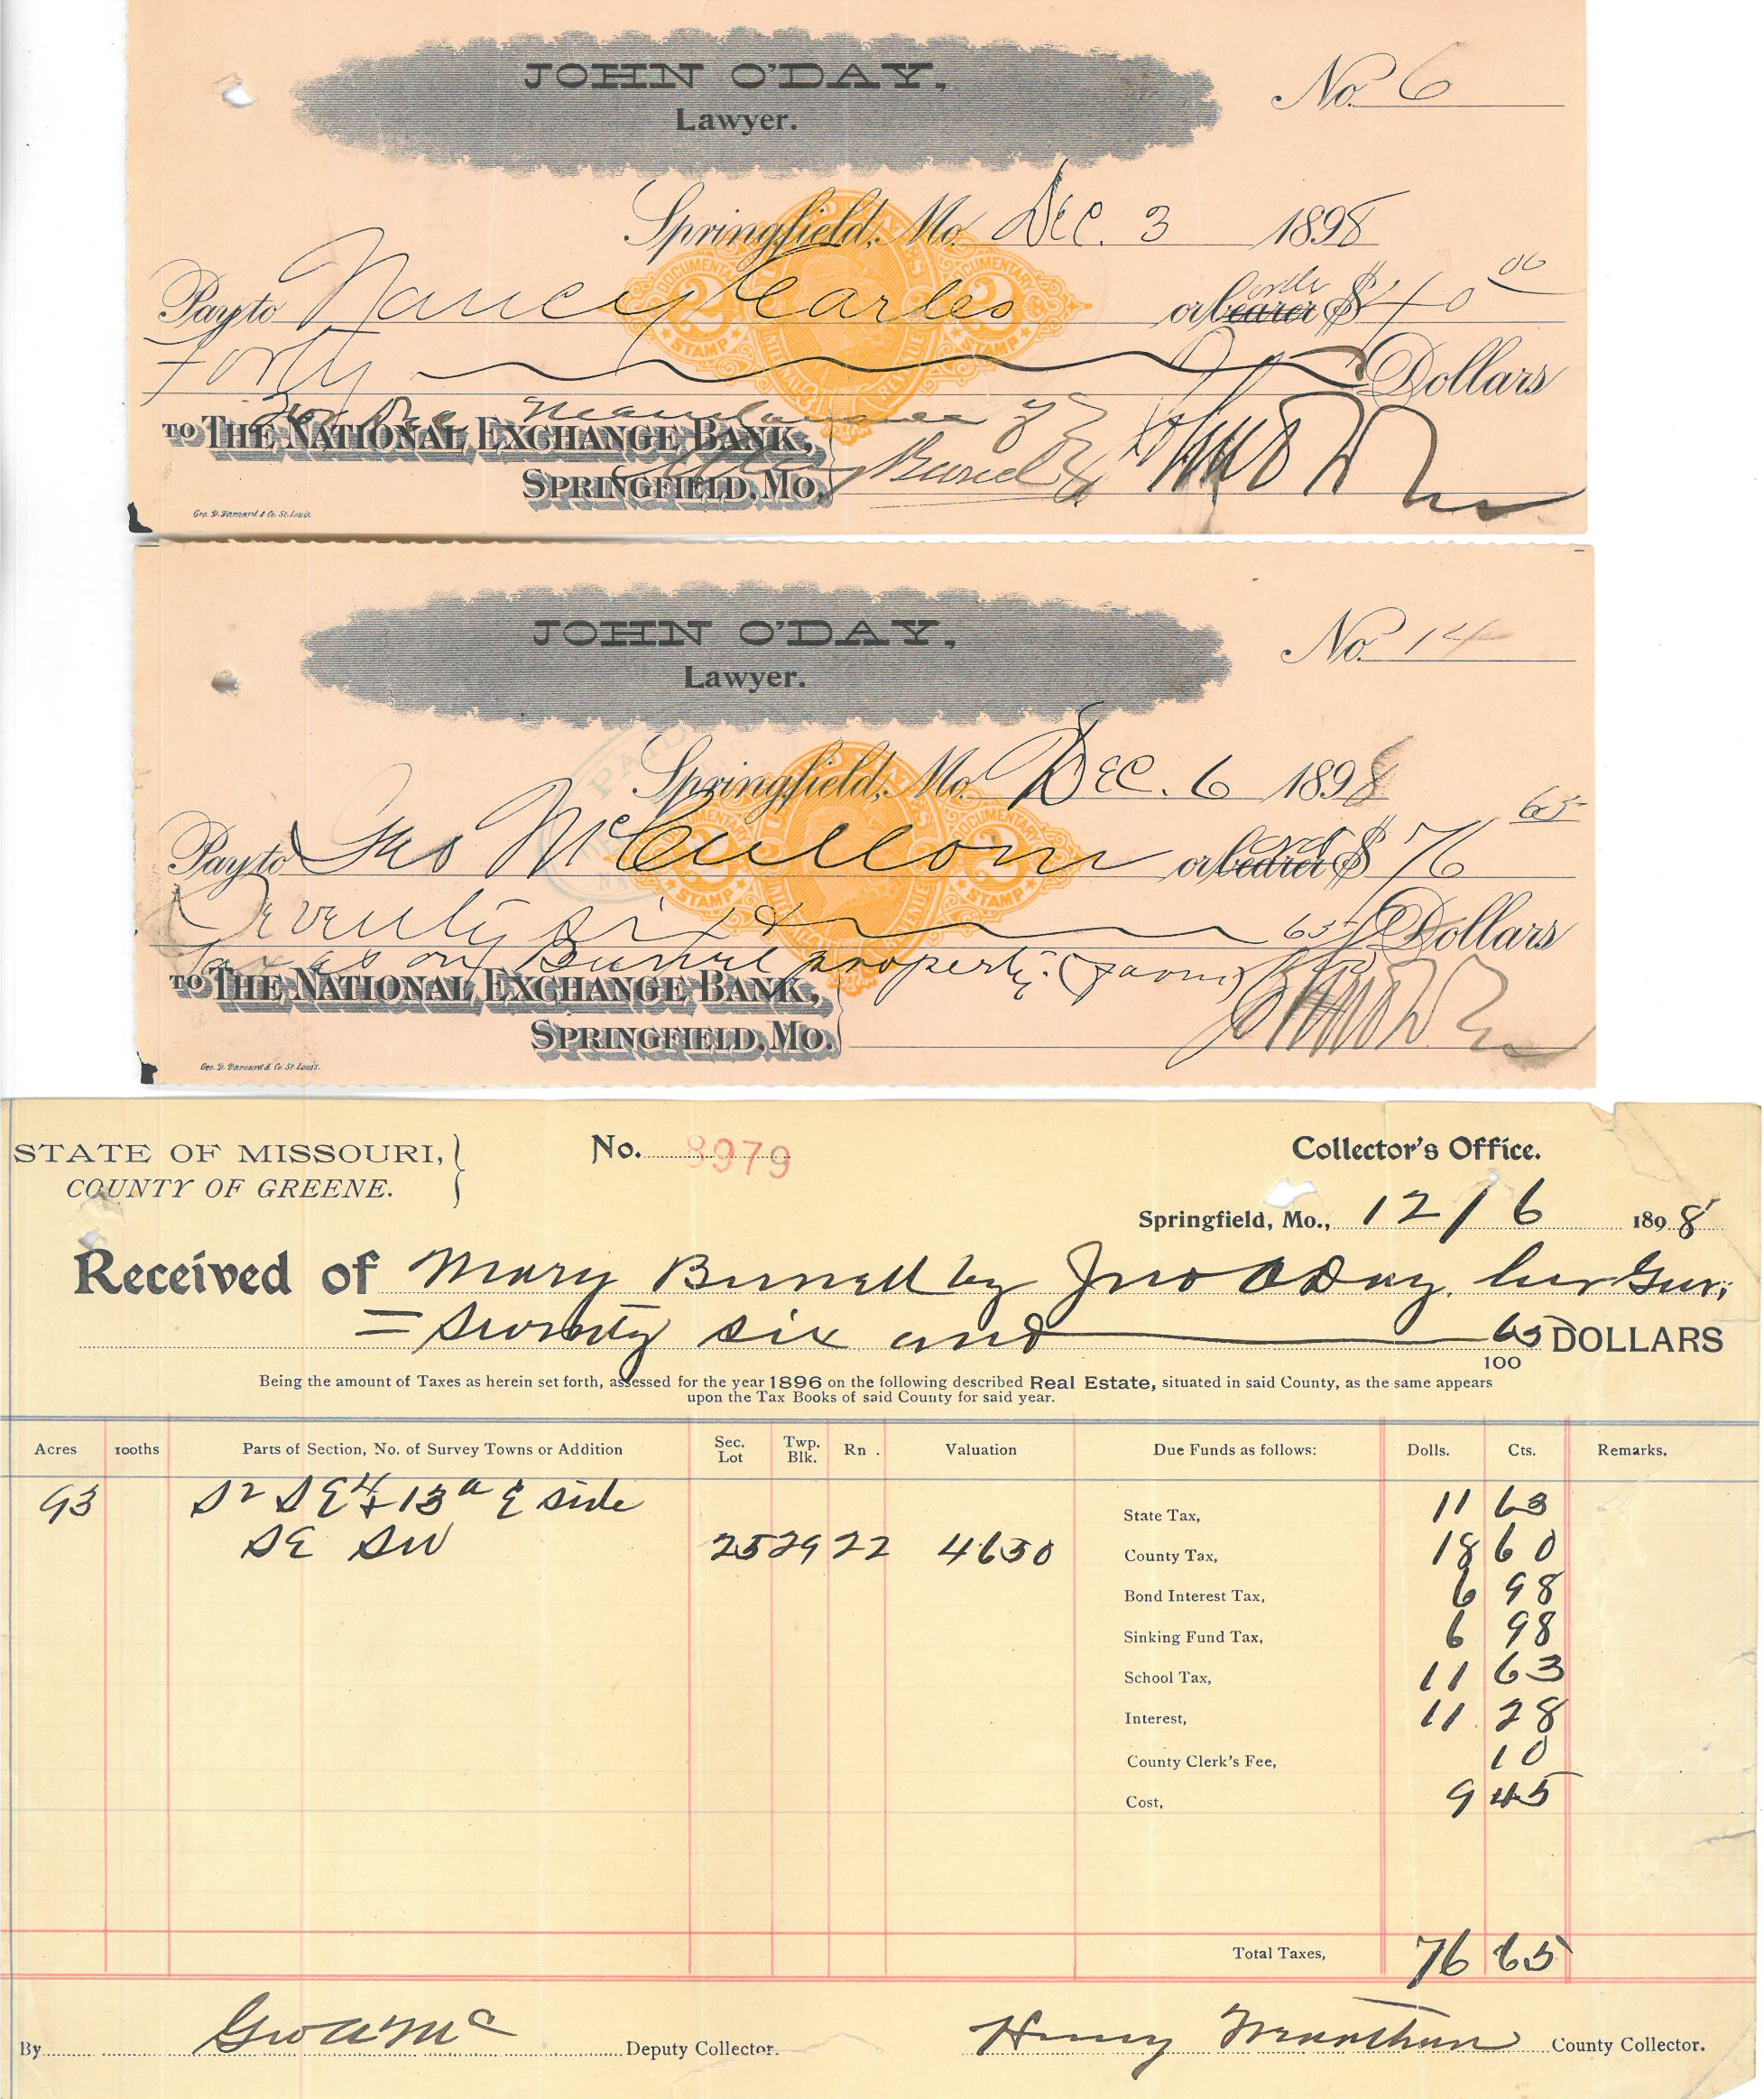 JOHN O'DAY,
Lawyer.
No. 6
Springfield, Mo. Dec. 3 1898
Pay to Nancy Earles or bearer order $ 40 00
Forty Dollars
For the Maintenance of
TO THE NATIONAL EXCHANGE BANK,
Mary Burrell
SPRINGFIELD, MO.
Geo. D. Barnard & Co. St. Louis.
DOCUMENTARY
2
STAMP
JOHN O'DAY,
Lawyer.
No. 14
PAID
Springfield, Mo. Dec. 6 1898
Pay to Geo McCullom or bearer ord $ 76 65
Seventy six & 65 Dollars
Taxes on Burrell property. (farm)
TO THE NATIONAL EXCHANGE BANK,
SPRINGFIELD, MO.
Geo. D. Barnard & Co. St. Louis.
DOCUMENTARY
2
STAMP
STATE OF MISSOURI,
COUNTY OF GREENE.
No. 8979
Collector's Office.
Springfield, Mo., 12/6 1898
Received of Mary Burrell by Jno O Day. her Gur;
= Seventy six and 65 DOLLARS
100
Being the amount of Taxes as herein set forth, assessed for the year 1896 on the following described Real Estate, situated in said County, as the same appears
upon the Tax Books of said County for said year.
Acres 100ths Parts of Section, No. of Survey Towns or Addition Sec. Lot Twp. Blk. Rn. Valuation Due Funds as follows: Dolls. Cts. Remarks.
93 S2 SE4 & 13a E side State Tax, 11 63
SE SW 25 29 22 4650 County Tax, 18 60
Bond Interest Tax, 6 98
Sinking Fund Tax, 6 98
School Tax, 11 63
Interest, 11 28
County Clerk's Fee, 10
Cost, 9 45
Total Taxes, 76 65
By Deputy Collector. Henry County Collector.